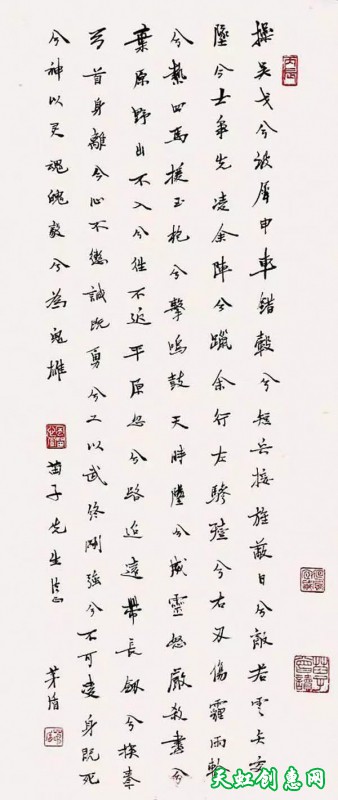 操吴戈兮被犀甲車錯轂兮短兵接旌蔽日兮敵若雲矢交
墜兮士爭先凌余陣兮躐余行左驂殪兮右刃傷霾兩輪
兮縶四馬援玉枹兮擊鳴鼓天時墜兮威靈怒嚴殺盡兮
棄原野出不入兮往不返平原忽兮路迢遠帶長劍兮挾秦
弓首身離兮心不懲誠既勇兮又以武終剛強兮不可凌身既死
兮神以灵魂魄毅兮為鬼雄
苗子先生正 茅盾
天虹创意网